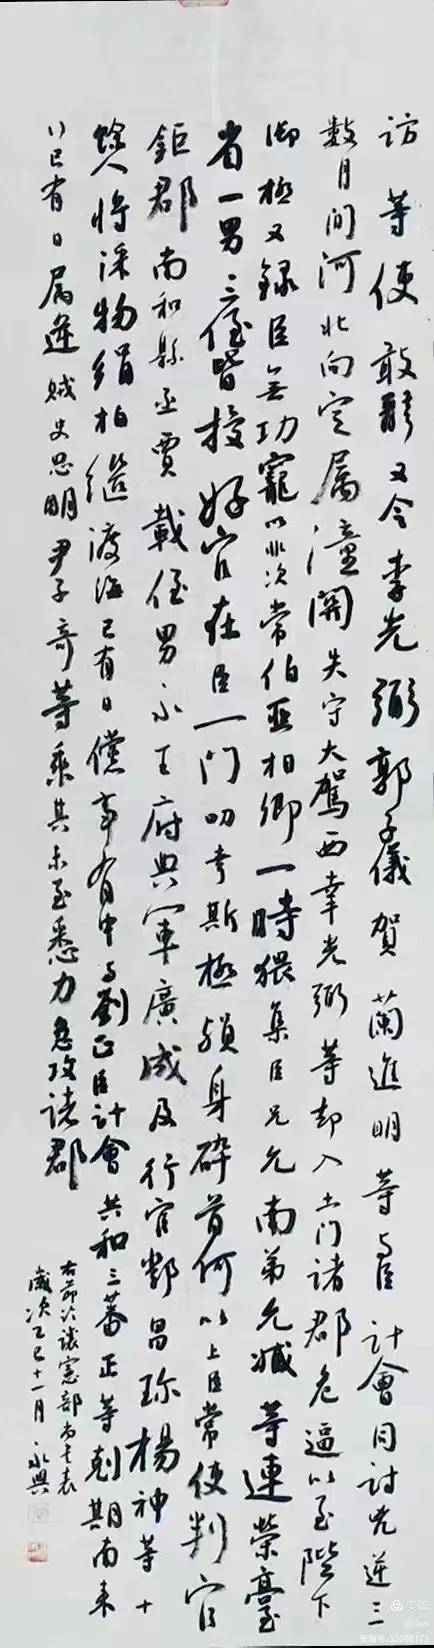 访等使敢醳又令李光弼郭子儀賀蘭進明等与臣計會同討兇逆三
數月間河北向定属潼関失守大駕西幸光弼等却入土门諸郡危逼以至陛下
御極又録臣無功寵以非次常伯亞相卿一時猥集臣兄允南弟允臧等連榮臺
省一男三侄皆授好官在臣一门叨幸斯極殞身碎首何以上臣常使判官
鉅郡南和縣丞賈載侄男永王府典軍廣成及行官鄭昌珍楊神等十
餘人將采物絹相繼渡海已有日儻事有中与劉正臣計會共和三蕃正等剋期南来
以已有日属逆賊史思明尹子奇等乘其未至悉力急攻诸郡
右節臨讓憲部尚書表
歲次乙巳十一月 永興
美篇
@Den